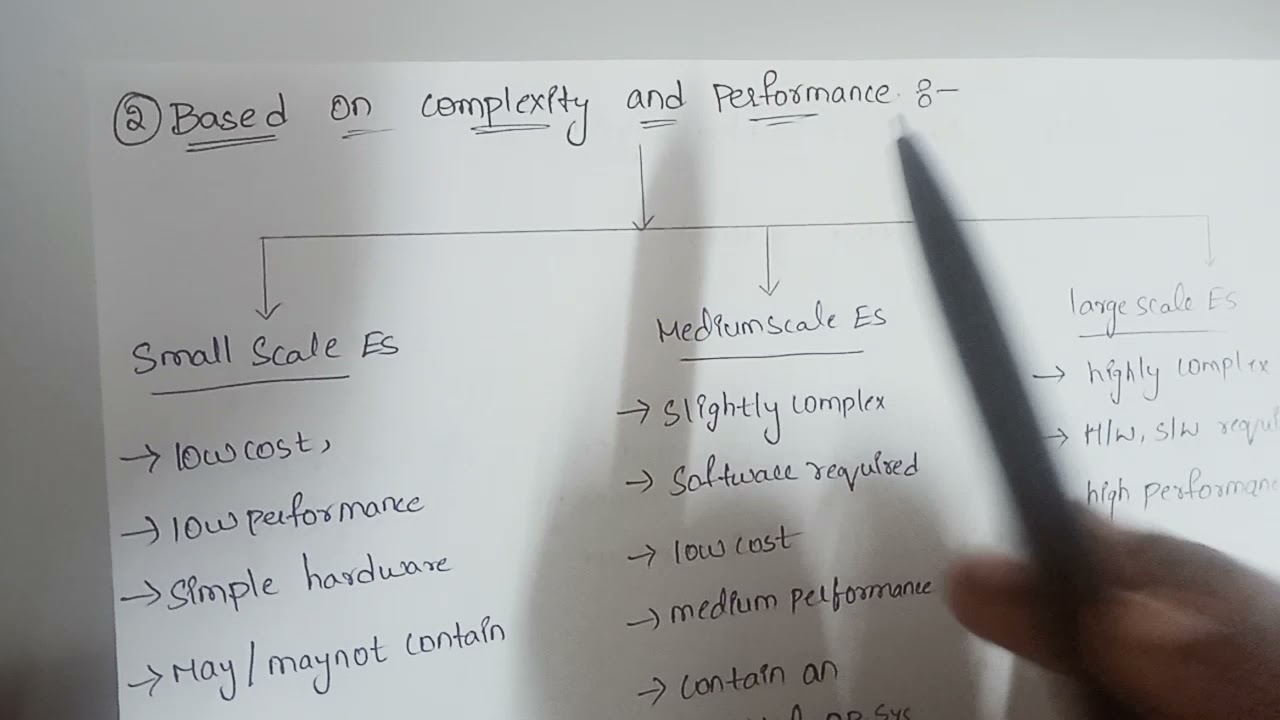 ② Based on complexity and performance :-
Small Scale ES
→ low cost,
→ low performance
→ simple hardware
→ May/maynot contain
Mediumscale ES
→ slightly complex
→ Software required
→ low cost
→ medium performance
→ contain an
op sys
large scale ES
→ highly complex
→ H/W, S/W
high